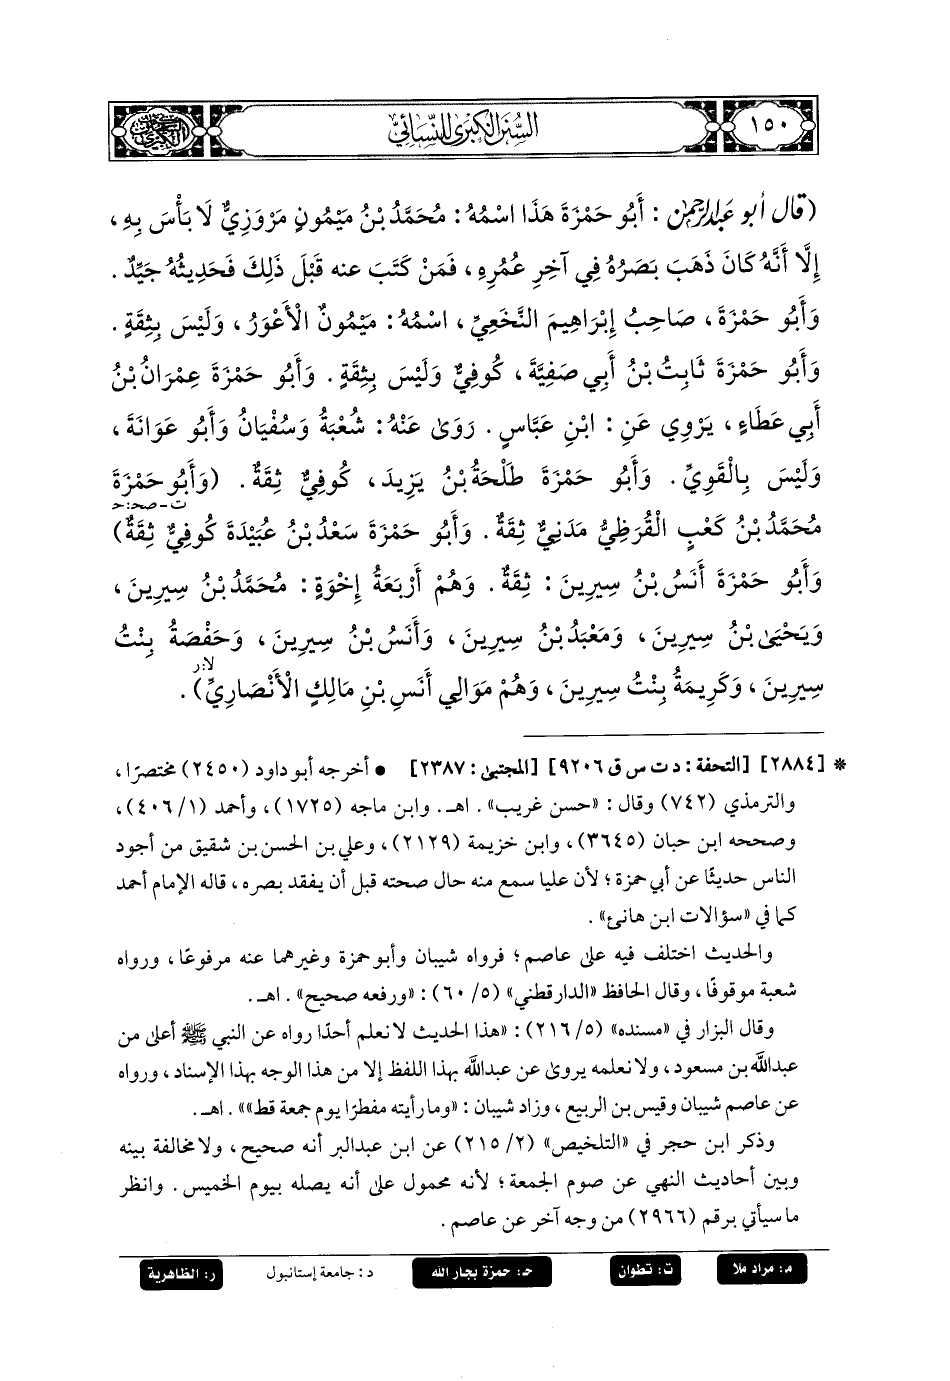 ١٥٠
السُّنَن الكبرى للنسائي
(قال أبو عبد الرحمن : أَبُو حَمْزَةَ هَذَا اسْمُهُ : مُحَمَّدُ بْنُ مَيْمُونٍ مَرْوَزِيٌّ لَا بَأْسَ بِهِ ،
إِلَّا أَنَّهُ كَانَ ذَهَبَ بَصَرُهُ فِي آخِرِ عُمُرِهِ ، فَمَنْ كَتَبَ عنه قَبْلَ ذَلِكَ فَحَدِيثُهُ جَيِّدٌ .
وَأَبُو حَمْزَةَ ، صَاحِبُ إِبْرَاهِيمَ النَّخَعِيِّ ، اسْمُهُ : مَيْمُونٌ الْأَعْوَرُ ، وَلَيْسَ بِثِقَةٍ .
وَأَبُو حَمْزَةَ ثَابِتُ بْنُ أَبِي صَفِيَّةَ ، كُوفِيٌّ وَلَيْسَ بِثِقَةٍ . وَأَبُو حَمْزَةَ عِمْرَانُ بْنُ
أَبِي عَطَاءٍ ، يَرْوِي عَنِ : ابْنِ عَبَّاسٍ . رَوَىٰ عَنْهُ : شُعْبَةُ وَسُفْيَانُ وَأَبُو عَوَانَةَ ،
وَلَيْسَ بِالْقَوِيِّ . وَأَبُو حَمْزَةَ طَلْحَةُ بْنُ يَزِيدَ ، كُوفِيٌّ ثِقَةٌ . (وَأَبُو حَمْزَةَ
ت-صح:حـ
مُحَمَّدُ بْنُ كَعْبٍ الْقُرَظِيُّ مَدَنِيٌّ ثِقَةٌ . وَأَبُو حَمْزَةَ سَعْدُ بْنُ عُبَيْدَةَ كُوفِيٌّ ثِقَةٌ)
وَأَبُو حَمْزَةَ أَنَسُ بْنُ سِيرِينَ : ثِقَةٌ . وَهُمْ أَرْبَعَةُ إِخْوَةٍ : مُحَمَّدُ بْنُ سِيرِينَ ،
وَيَحْيَىٰ بْنُ سِيرِينَ ، وَمَعْبَدُ بْنُ سِيرِينَ ، وَأَنَسُ بْنُ سِيرِينَ ، وَحَفْصَةُ بِنْتُ
لا:ر
سِيرِينَ ، وَكَرِيمَةُ بِنْتُ سِيرِينَ ، وَهُمْ مَوَالِي أَنَسِ بْنِ مَالِكٍ الْأَنْصَارِيِّ) .
* [٢٨٨٤] [التحفة : د ت س ق ٩٢٠٦] [المجتبىٰ : ٢٣٨٧] • أخرجه أبو داود (٢٤٥٠) مختصرًا ،
والترمذي (٧٤٢) وقال : «حسن غريب» . اهـ. وابن ماجه (١٧٢٥) ، وأحمد (١/ ٤٠٦) ،
وصححه ابن حبان (٣٦٤٥) ، وابن خزيمة (٢١٢٩) ، وعلي بن الحسن بن شقيق من أجود
الناس حديثًا عن أبي حمزة ؛ لأن عليا سمع منه حال صحته قبل أن يفقد بصره ، قاله الإمام أحمد
كما في «سؤالات ابن هانئ» .
والحديث اختلف فيه على عاصم ؛ فرواه شيبان وأبو حمزة وغيرهما عنه مرفوعًا ، ورواه
شعبة موقوفًا ، وقال الحافظ «الدارقطني» (٥/ ٦٠) : «ورفعه صحيح» . اهـ .
وقال البزار في «مسنده» (٥/ ٢١٦) : «هذا الحديث لا نعلم أحدًا رواه عن النبي ﷺ أعلىٰ من
عبدالله بن مسعود ، ولا نعلمه يروىٰ عن عبدالله بهذا اللفظ إلا من هذا الوجه بهذا الإسناد ، ورواه
عن عاصم شيبان وقيس بن الربيع ، وزاد شيبان : «وما رأيته مفطرًا يوم جمعة قط»» . اهـ .
وذكر ابن حجر في «التلخيص» (٢/ ٢١٥) عن ابن عبدالبر أنه صحيح ، ولا مخالفة بينه
وبين أحاديث النهي عن صوم الجمعة ؛ لأنه محمول علىٰ أنه يصله بيوم الخميس . وانظر
ما سيأتي برقم (٢٩٦٦) من وجه آخر عن عاصم .
م: مراد ملا
ت: تطوان
حـ: حمزة بجار الله
د: جامعة إستانبول
ر: الظاهرية